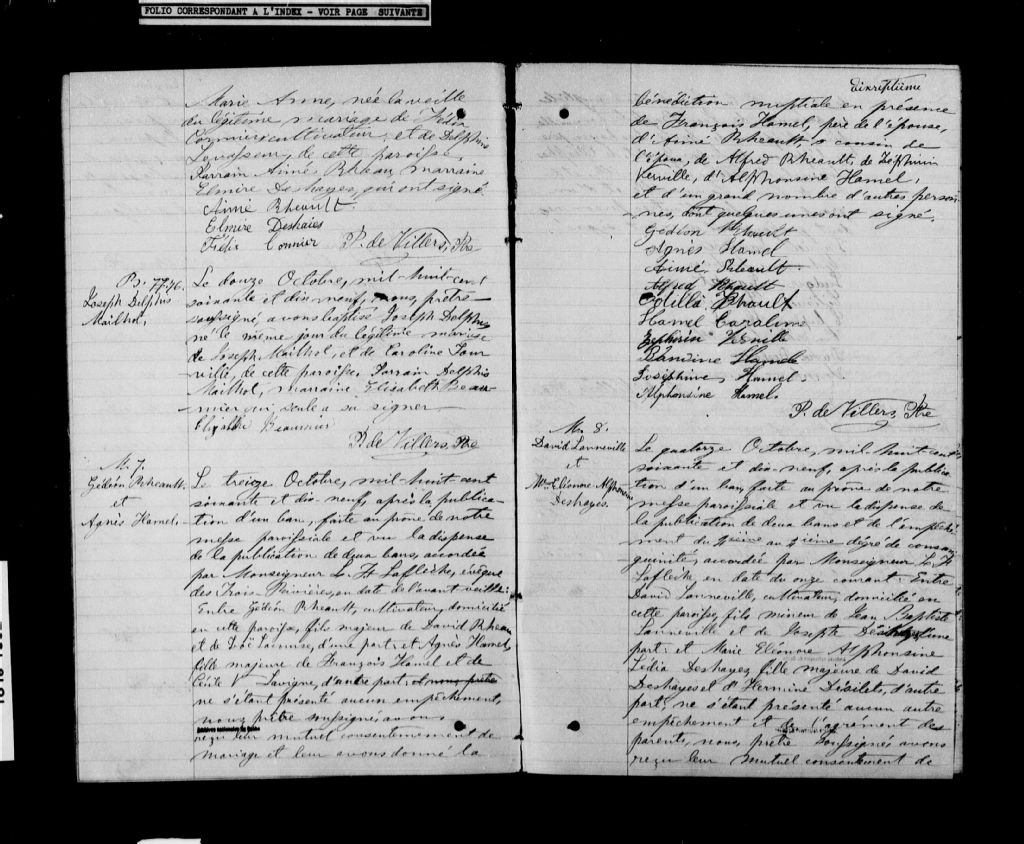 FOLIO CORRESPONDANT A L'INDEX - VOIR PAGE SUIVANTE
Marie Anne, née la veille
du légitime mariage de Félix
Cormier cultivateur et de Delphine
Levasseur, de cette paroisse.
Parrain Aimé Rheau, marraine
Elmire Deshayes, qui ont signé
Aimé Rheault.
Elmire Deshaies
Félix Cormier P. de Villers, Ptre
B. 77.76.
Joseph Delphis
Mailhot,
Le douze Octobre, mil-huit-cent
soixante et dix-neuf, nous, prêtre
soussigné, avons baptisé Joseph Delphis
né le même jour du légitime mariage
de Joseph Mailhot, et de Caroline Tour
ville, de cette paroisse, Parrain Adolphis
Mailhot, marraine Elisabeth Beau-
mier qui seule a su signer
Beaumier
P. de Villers, Ptre
M. 7.
Gédéon Rheault.
et
Agnès Hamel,
Le treize Octobre, mil-huit cent
soixante et dix-neuf, après la publica-
tion d'un ban, faite au prône de notre
messe paroissiale et vu la dispense
de la publication de deux bans, accordée
par Monseigneur L. F. Laflèche, évêque
des Trois-Rivières, en date de l'avant veille:
Entre Gédéon Rheault, cultivateur, domicilié
en cette paroisse, fils majeur de David Rheau
et de Zoé d'une part; et Agnès Hamel,
fille majeure de François Hamel et de
Cécile Lavigne, d'autre part; et nous prêtre
ne s'étant présenté aucun empêchement,
nous prêtre soussigné avons
reçu leur mutuel consentement de
mariage et leur avons donné la
dixseptième
bénédiction nuptiale en présence
de François Hamel, père de l'épouse,
d'Aimé Rheault, cousin de
l'époux, de Alfred Rheault, de Zéphirin
Verville, d'Alphonsine Hamel,
et d'un grand nombre d'autres person-
nes, dont quelques unes ont signé.
Gédéon Rheault
Agnès Hamel
Aimé Rheault.
Alfred Rheault
Odilla Rhault
Hamel Caroline
Zephirin Verville
Hamel
Joséphine Hamel.
Alphonsine Hamel.
P. de Villers, Ptre
M. 8.
David Lanneville
et
Eléonore Alphonsine
Deshayes.
Le quatorze Octobre, mil huit cent
soixante et dix-neuf, après la publica
tion d'un ban, faite au prône de notre
messe paroissiale et vu la dispense de
la publication de deux bans et de l'empêche
ment du au degré de consan
guinité, accordée par Monseigneur L. F.
Laflèche, en date du onze courant: Entre
David Lanneville, cultivateur, domicilié en
cette paroisse, fils mineur de Jean Baptiste
Lanneville et de Joseph d'une
part: et Marie Eléonore Alphonsine
Lédia Deshayes, fille majeure de David
Deshayes et d'Herminé Désilets, d'autre
part; ne s'étant présenté aucun autre
empêchement et de l'agrément des
parents, nous, prêtre soussigné avons
reçu leur mutuel consentement de